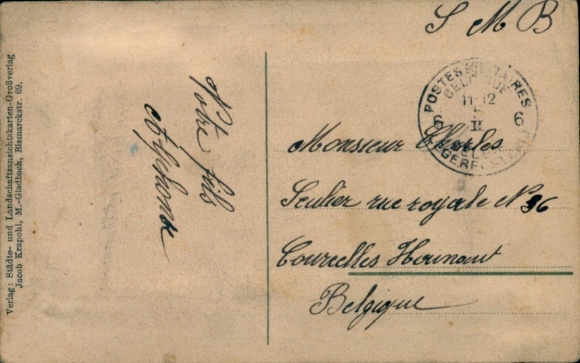 S M B
POSTES MILITAIRES
BELGIQUE
11-12
6 II 6
BELGIË
LEGERPOSTERIJ
Votre fils
Alphonse
Monsieur Charles
Seulier rue royale N° 36
Courcelles Hounaut
Belgique
Verlag: Städte- und Landschaftsansichtskarten-Großverlag
Jacob Krapohl, M.-Gladbach, Bismarckstr. 69.